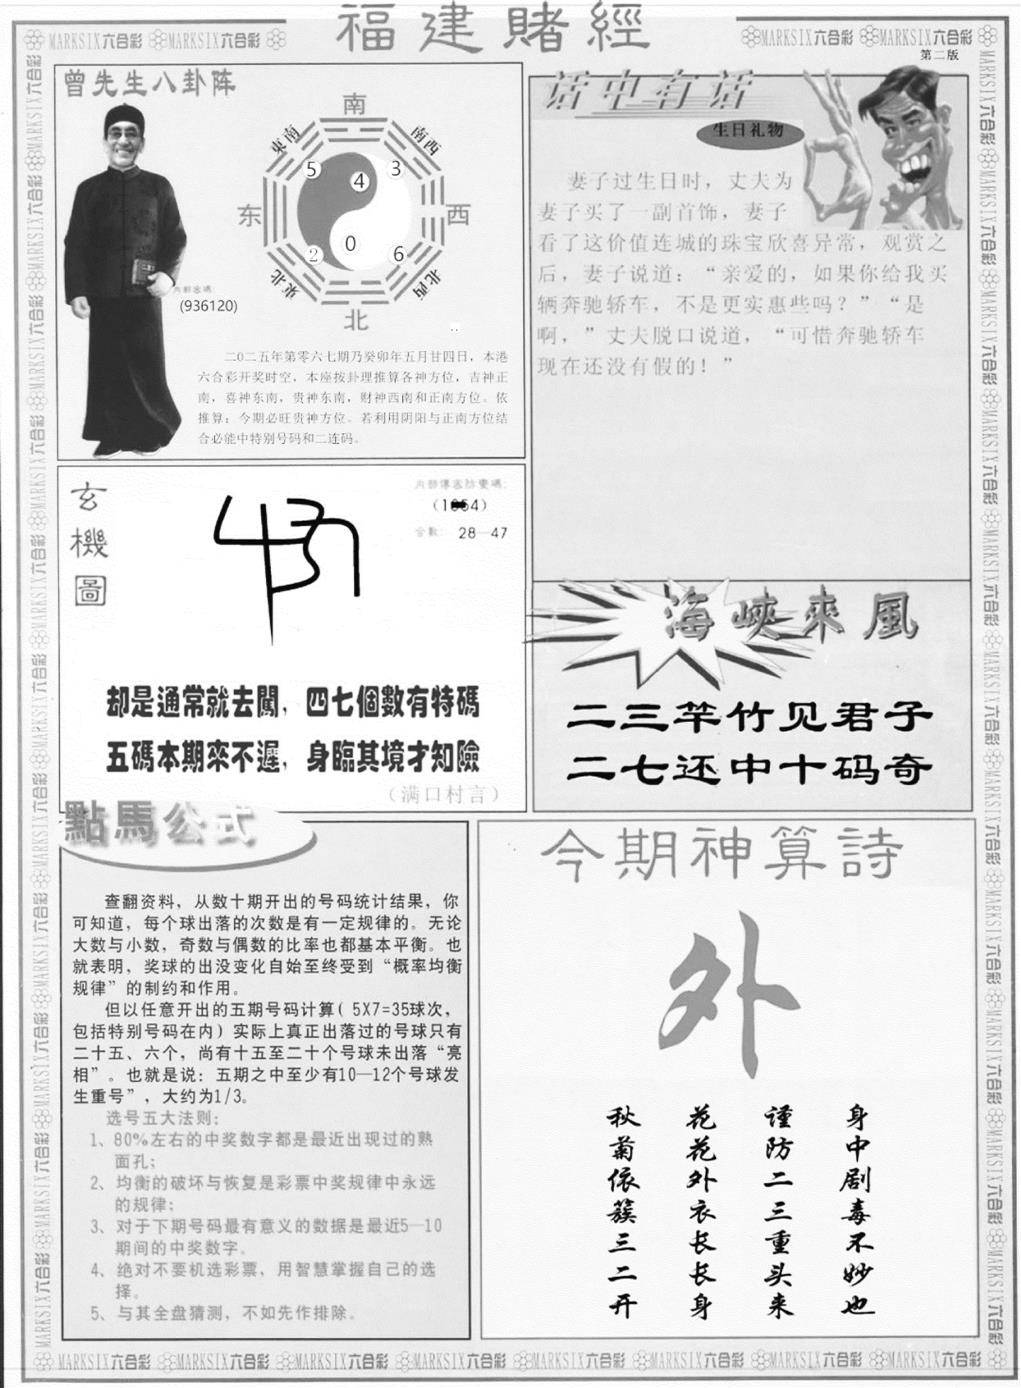 福建賭經
MARKSIX六合彩 MARKSIX六合彩
MARKSIX六合彩 MARKSIX六合彩
第二版
曾先生八卦阵
南
東南
南西
东
西
東北
北西
北
5
4
3
2
0
6
内部密碼:
(936120)
二0二五年第零六七期乃癸卯年五月廿四日，本港
六合彩开奖时空，本座按卦理推算各神方位，吉神正
南，喜神东南，贵神东南，财神西南和正南方位。依
推算：今期必旺贵神方位、若利用阴阳与正南方位结
合必能中特别号码和二连码。
话中有话
生日礼物
妻子过生日时，丈夫为
妻子买了一副首饰，妻子
看了这价值连城的珠宝欣喜异常，观赏之
后，妻子说道：“亲爱的，如果你给我买
辆奔驰轿车，不是更实惠些吗？”“是
啊，”丈夫脱口说道，“可惜奔驰轿车
现在还没有假的！”
玄機圖
合數： 28—47
却是通常就去闖，四七個數有特碼
五碼本期來不遲，身臨其境才知險
（满口村言）
海峽來風
二三竿竹见君子
二七还中十码奇
點馬公式
查翻资料，从数十期开出的号码统计结果，你
可知道，每个球出落的次数是有一定规律的。无论
大数与小数，奇数与偶数的比率也都基本平衡。也
就表明，奖球的出没变化自始至终受到“概率均衡
规律”的制约和作用。
但以任意开出的五期号码计算( 5X7=35球次，
包括特别号码在内) 实际上真正出落过的号球只有
二十五、六个，尚有十五至二十个号球未出落“亮
相”。也就是说：五期之中至少有10—12个号球发
生重号”，大约为1/3。
选号五大法则：
1、80%左右的中奖数字都是最近出现过的熟
面孔；
2、均衡的破坏与恢复是彩票中奖规律中永远
的规律；
3、对于下期号码最有意义的数据是最近5—10
期间的中奖数字。
4、绝对不要机选彩票，用智慧掌握自己的选
择。
5、与其全盘猜测，不如先作排除。
今期神算詩
外
身中剧毒不妙也
谨防二三重头来
花花外衣长长身
秋菊依簇三二开
MARKSIX六合彩 MARKSIX六合彩 MARKSIX六合彩 MARKSIX六合彩 MARKSIX六合彩 MARKSIX六合彩 MARKSIX六合彩 MARKSIX六合彩